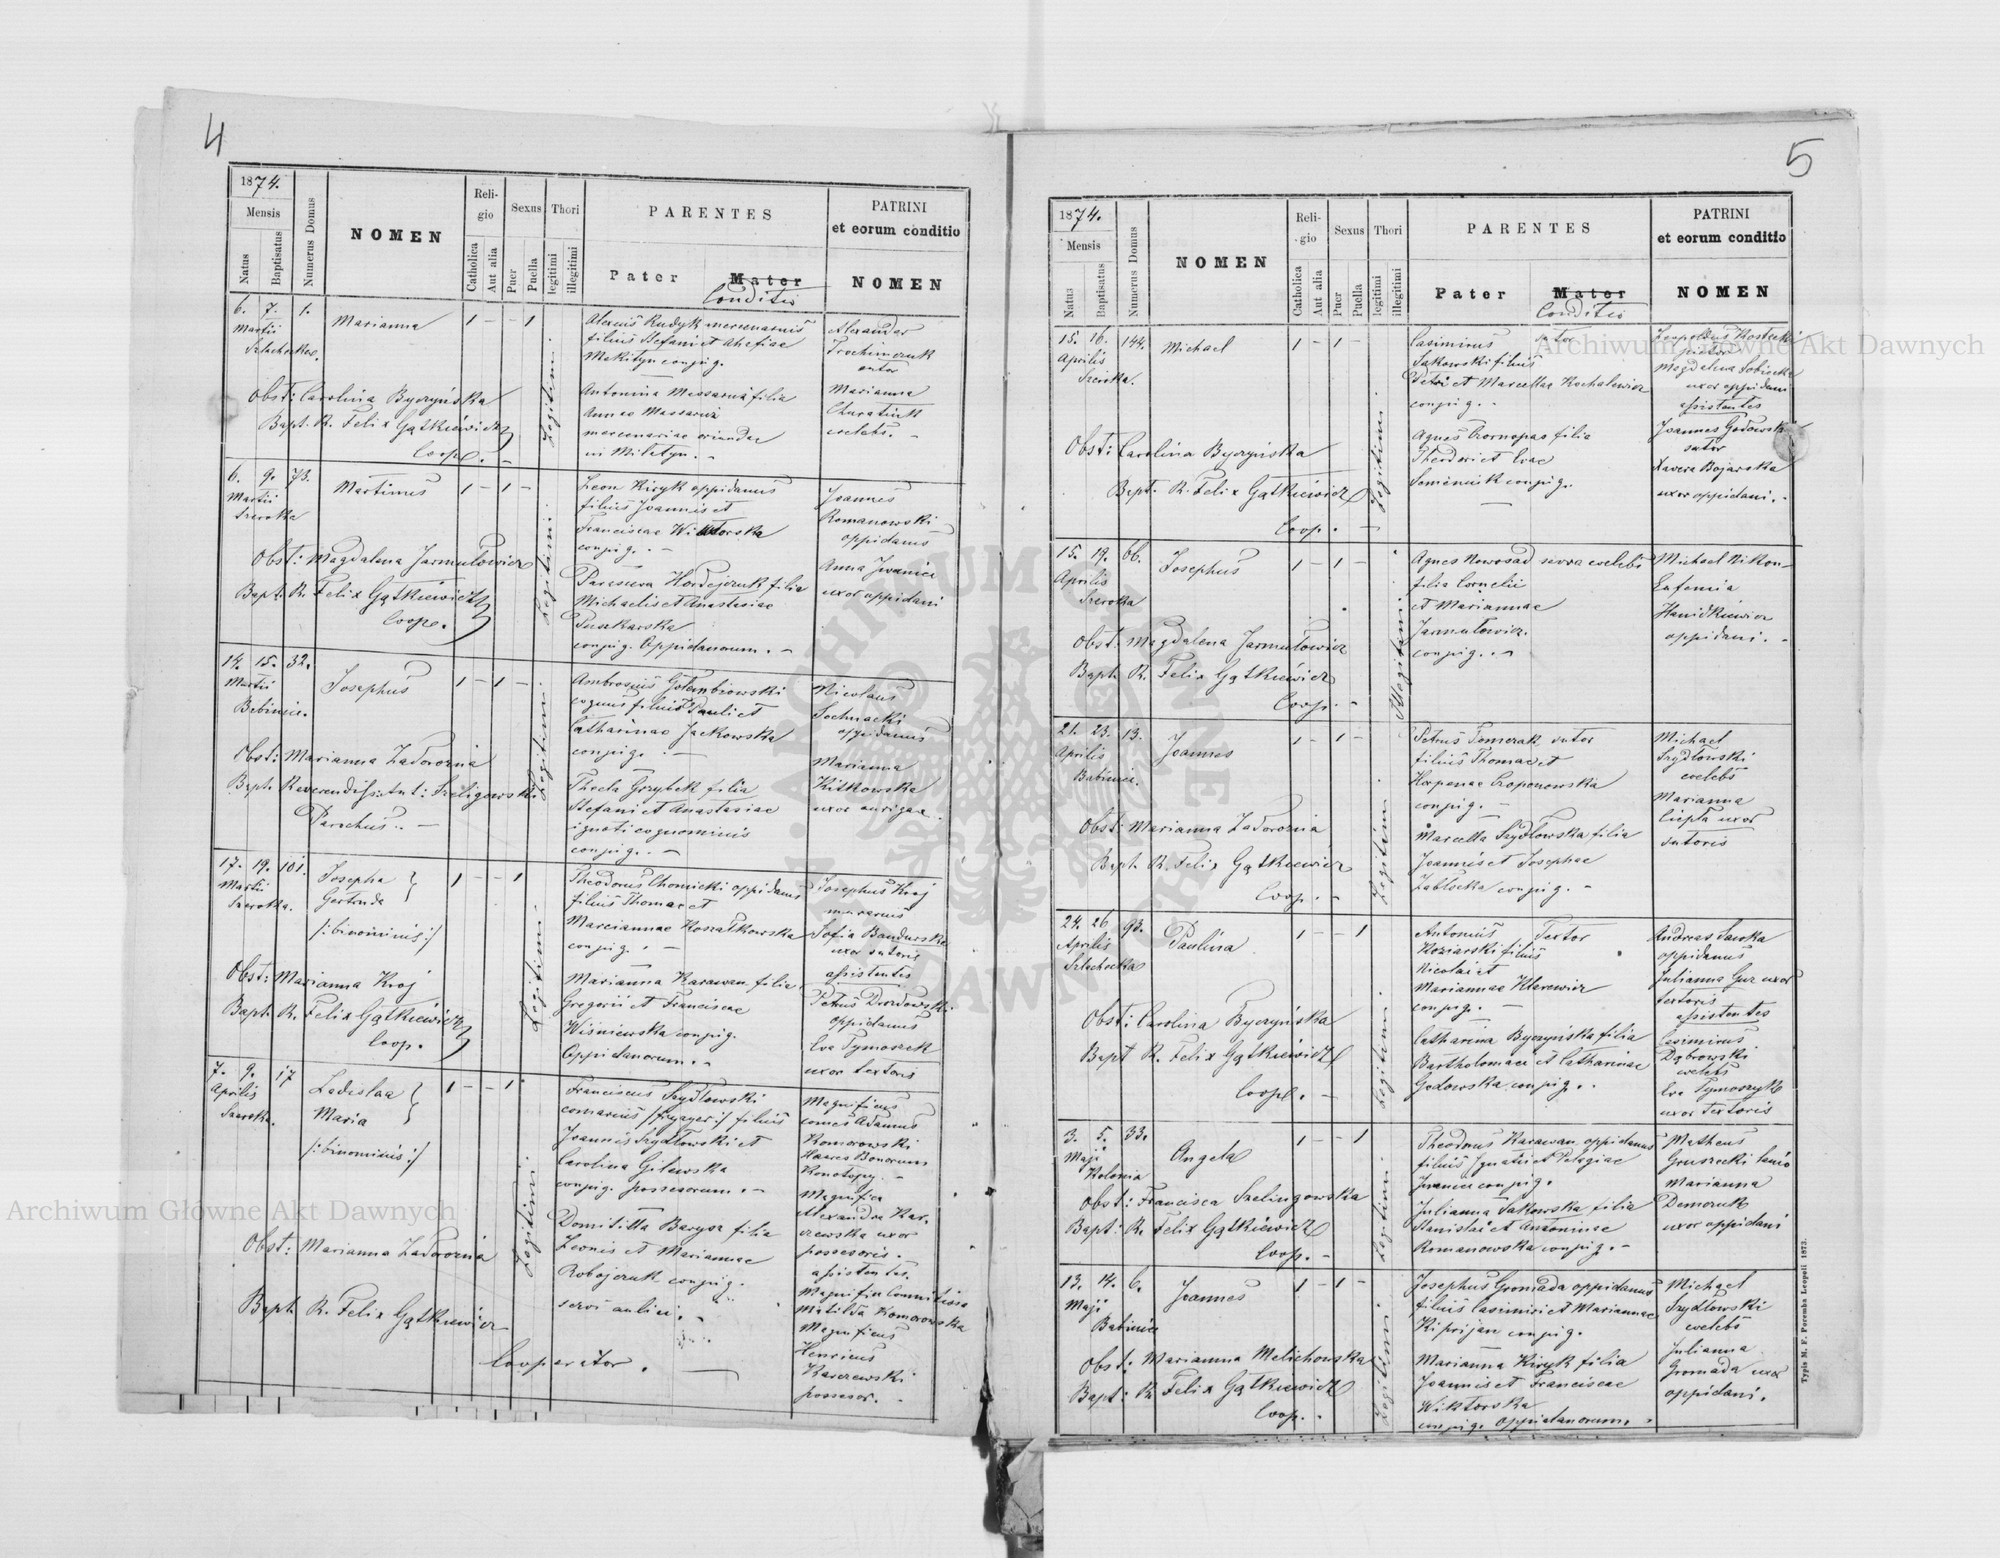 4
1874.
Mensis
Natus
Baptisatus
Numerus Domus
NOMEN
Religio
Catholica
Aut alia
Sexus
Puer
Puella
Thori
legitimi
illegitimi
PARENTES
Pater
Mater
Conditio
PATRINI
et eorum conditio
NOMEN
6. 7. 1.
Martii
Marianna
1 - - 1
Legitimi.
Alexius Rudyk mercenarius
filius Stefani et
conjug.
Antonina Massaruk filia
Annae
mercenariae oriundae
Alexander
Trochimczuk
sutor
Marianna
coelebs. -
Obst: Carolina Byczyńska
Bapt. R. Felix Gątkiewicz
Coop. -
6. 9. 73.
Martii
Szeroka
Martinus
1 - 1 -
Legitimi.
Leon Kiryk oppidanus
filius Joannis et
Franciscae Wiktorska
conjug. -
Parasceva Hordejczuk filia
Michaelis et Anastasiae
Puszkarska
conjug. Oppidanorum. -
Joannes
Romanowski
oppidanus
Anna Iwanici
uxor oppidani
Obst: Magdalena Jarmulowicz
Bapt. R. Felix Gątkiewicz
Coop.
14. 15. 32.
Martii
Babiniec.
Josephus
1 - 1 -
Legitimi.
Ambrosius Golembiowski
coquus filius Pauli et
Catharinae Jackowska
conjug. -
Thecla Grzybek filia
Stefani et Anastasiae
ignoti cognominis
conjug. -
Nicolaus
Sochacki
oppidanus
Marianna
Kitkowska
uxor aurigae.
Obst: Marianna Zadorozna
Bapt. Reverendiss: Ant: Szeligowski
Parochus. -
17. 19. 101.
Martii
Szeroka.
Josepha
Gertruda
/:binominis:/
1 - - 1
Legitimi.
Theodorus Chomicki oppidanus
filius Thomae et
Marciannae Koszalkowska
conjug. -
Marianna Karawan filia
Gregorii et Franciscae
Wiśniewska conjug.
Oppidanorum. -
Josephus Kroj
murarius
Sofia Bandurska
uxor sutoris
assistentes
Petrus Dwordowski
oppidanus
Eva Tymoszek
uxor textoris
Obst: Marianna Kroj
Bapt. R. Felix Gątkiewicz
Coop.
7. 9. 17
Aprilis
Szeroka.
Ladislaa
Maria
/:binominis:/
1 - - 1
Legitimi.
Franciscus Szydłowski
comarius /:fryzyer:/ filius
Joannis Szydłowski et
Carolina Gilewska
conjug. possessorum. -
Domitilla Barysz filia
Leonis et Mariannae
Robojczuk conjug.
servi aulici. -
Magnificus
comes Adamus
Komorowski
Haeres Bonorum
Konotopy. -
Magnifica
Alexandra Karczewska
uxor
possessoris.
assistentes.
Magnifica Commitissa
Matilda Komorowska
Magnificus
Henricus
Karczewski
possessor. -
Obst: Marianna Zadorozna
Bapt. R. Felix Gątkiewicz
Cooperator. -
5
1874.
Mensis
Natus
Baptisatus
Numerus Domus
NOMEN
Religio
Catholica
Aut alia
Sexus
Puer
Puella
Thori
legitimi
illegitimi
PARENTES
Pater
Mater
Conditio
PATRINI
et eorum conditio
NOMEN
15. 16. 144.
Aprilis
Szeroka.
Michael
1 - 1 -
Legitimi.
Casimirus sutor
Sakowski filius
Petri et Marcellae Kochalewicz
conjug. -
Agnes Czornopas filia
Theodori et Evae
Semeniuk conjug.
Leopoldus Kostecki
pictor
Magdalena Sobiecka
uxor oppidani
assistentes
Joannes Godowski
sutor
Xavera Bojarska
uxor oppidani. -
Obst: Carolina Byczyńska
Bapt. R. Felix Gątkiewicz
Coop. -
15. 19. 66.
Aprilis
Szeroka
Josephus
1 - 1 -
Illegitimi.
Agnes Nowosad serva coelebs
filia Cornelii
et Mariannae
Jarmulowicz.
conjug. -
Michael Nikon
Eufemia
Hanidkiewicz
oppidani. -
Obst: Magdalena Jarmulowicz
Bapt. R. Felix Gątkiewicz
Coop. -
21. 23. 13.
Aprilis
Babiniec.
Joannes
1 - 1 -
Legitimi.
Petrus Tomczak sutor
filius Thomae et
Horpenae Czoponowska
conjug. -
Marcella Szydłowska filia
Joannis et Josephae
Zablocka conjug. -
Michael
Szydłowski
coelebs
Marianna
Liepta uxor
sutoris
Obst: Marianna Zadorozna
Bapt. R. Felix Gątkiewicz
Coop. -
24. 26. 93.
Aprilis
Szlachecka
Paulina
1 - - 1
Legitimi.
Antonius Textor
Koziarski filius
Nicolai et
Mariannae Klarewicz
conjug. -
Catharina Byczyńska filia
Bartholomaei et Catharinae
Godowska conjug. -
Andreas Sawka
oppidanus
Julianna Guz uxor
textoris
assistentes
Casimirus
Dąbrowski
coelebs
Eva Tymoszyk
uxor Textoris
Obst: Carolina Byczyńska
Bapt R. Felix Gątkiewicz
Coop. -
3. 5. 33.
Maji
Kolonia
Angela
1 - - 1
Legitimi.
Theodorus Karawan oppidanus
filius Ignatii et Pelagiae
Iwanici conjug.
Julianna Sakowska filia
Stanislai et Antoninae
Romanowska conjug. -
Matheus
Gruszecki lanio
Marianna
Demczuk
uxor oppidani
Obst: Francisca Szelingowska
Bapt: R. Felix Gątkiewicz
Coop. -
13. 14. 6.
Maji
Babiniec
Joannes
1 - 1 -
Legitimi.
Josephus Gromada oppidanus
filius Casimiri et Mariannae
Kiprijan conjug.
Marianna Kiryk filia
Joannis et Franciscae
Wiktorska
conjug. oppidanorum. -
Michael
Szydłowski
coelebs
Julianna
Gromada uxor
oppidani.
Obst: Marianna Melichowska
Bapt: R. Felix Gątkiewicz
Coop. -
Typis M. F. Poremba Leopoli 1873.
Archiwum Główne Akt Dawnych
Archiwum Główne Akt Dawnych
ARCHIWUM GŁÓWNE AKT DAWNYCH